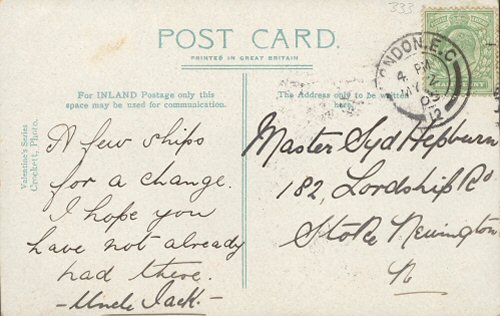 333
POST CARD.
PRINTED IN GREAT BRITAIN
For INLAND Postage only this
space may be used for communication.
The Address only to be written
here.
Valentine's Series
Crockett, Photo.
LONDON. E.C.
4. PM
MY
12
HALFPENNY
A few ships
for a change.
I hope you
have not already
had these.
- Uncle Jack. -
Master Syd Hepburn
182, Lordship Rd
Stoke Newington
N